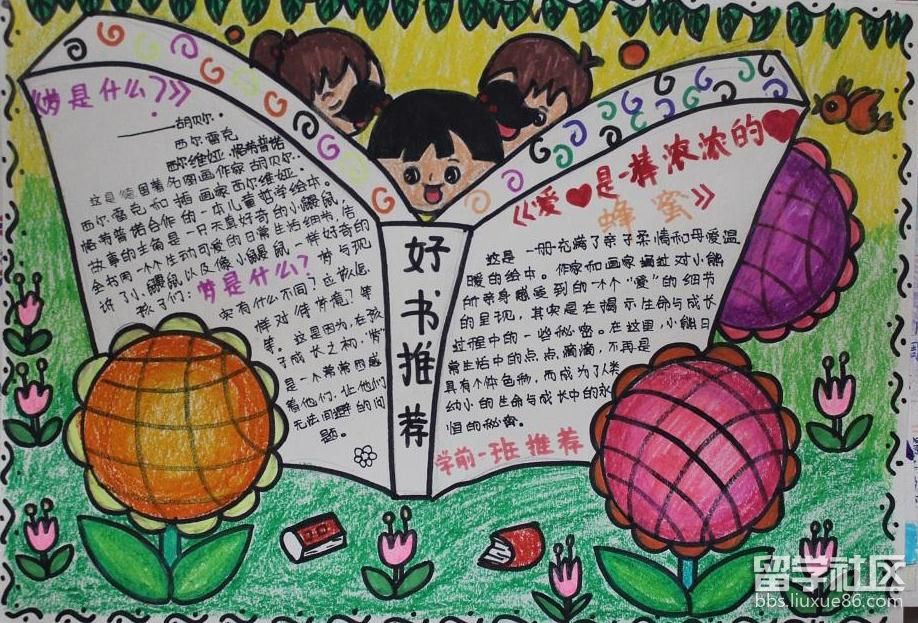 《梦是什么?》
——胡贝尔·
西尔·雷克
西尔维娅·格普诺
这是德国著名图画作家胡贝尔·
西尔·雷克和插画家西尔维娅·
格普诺合作的一本儿童哲学绘本。
故事的主角是一只天真好奇的小鼹鼠,
全书用一个个生动可爱的日常生活细节,告
诉了小鼹鼠以及像小鼹鼠一样好奇的
孩子们:梦是什么?梦与现
实有什么不同?应该怎
样对待梦境?等
等。这是因为,在孩
子成长之初,“梦”
是一个常常困惑
着他们,让他们
无法回避的问
题。
好书推荐
《爱是一棒浓浓的
蜂蜜》
这是一册充满了亲子柔情和母爱温
暖的绘本。作家和画家通过对小熊
所亲身感受到的一个个“爱”的细节
的呈现,其实是在揭示生命与成长
过程中的一些秘密。在这里,小熊日
常生活中的点点滴滴,不再是
具有个体色物,而成为了人类
幼小的生命与成长中的永
恒的秘密。
学前一班推荐
留学社区
bbs.liuxue86.com